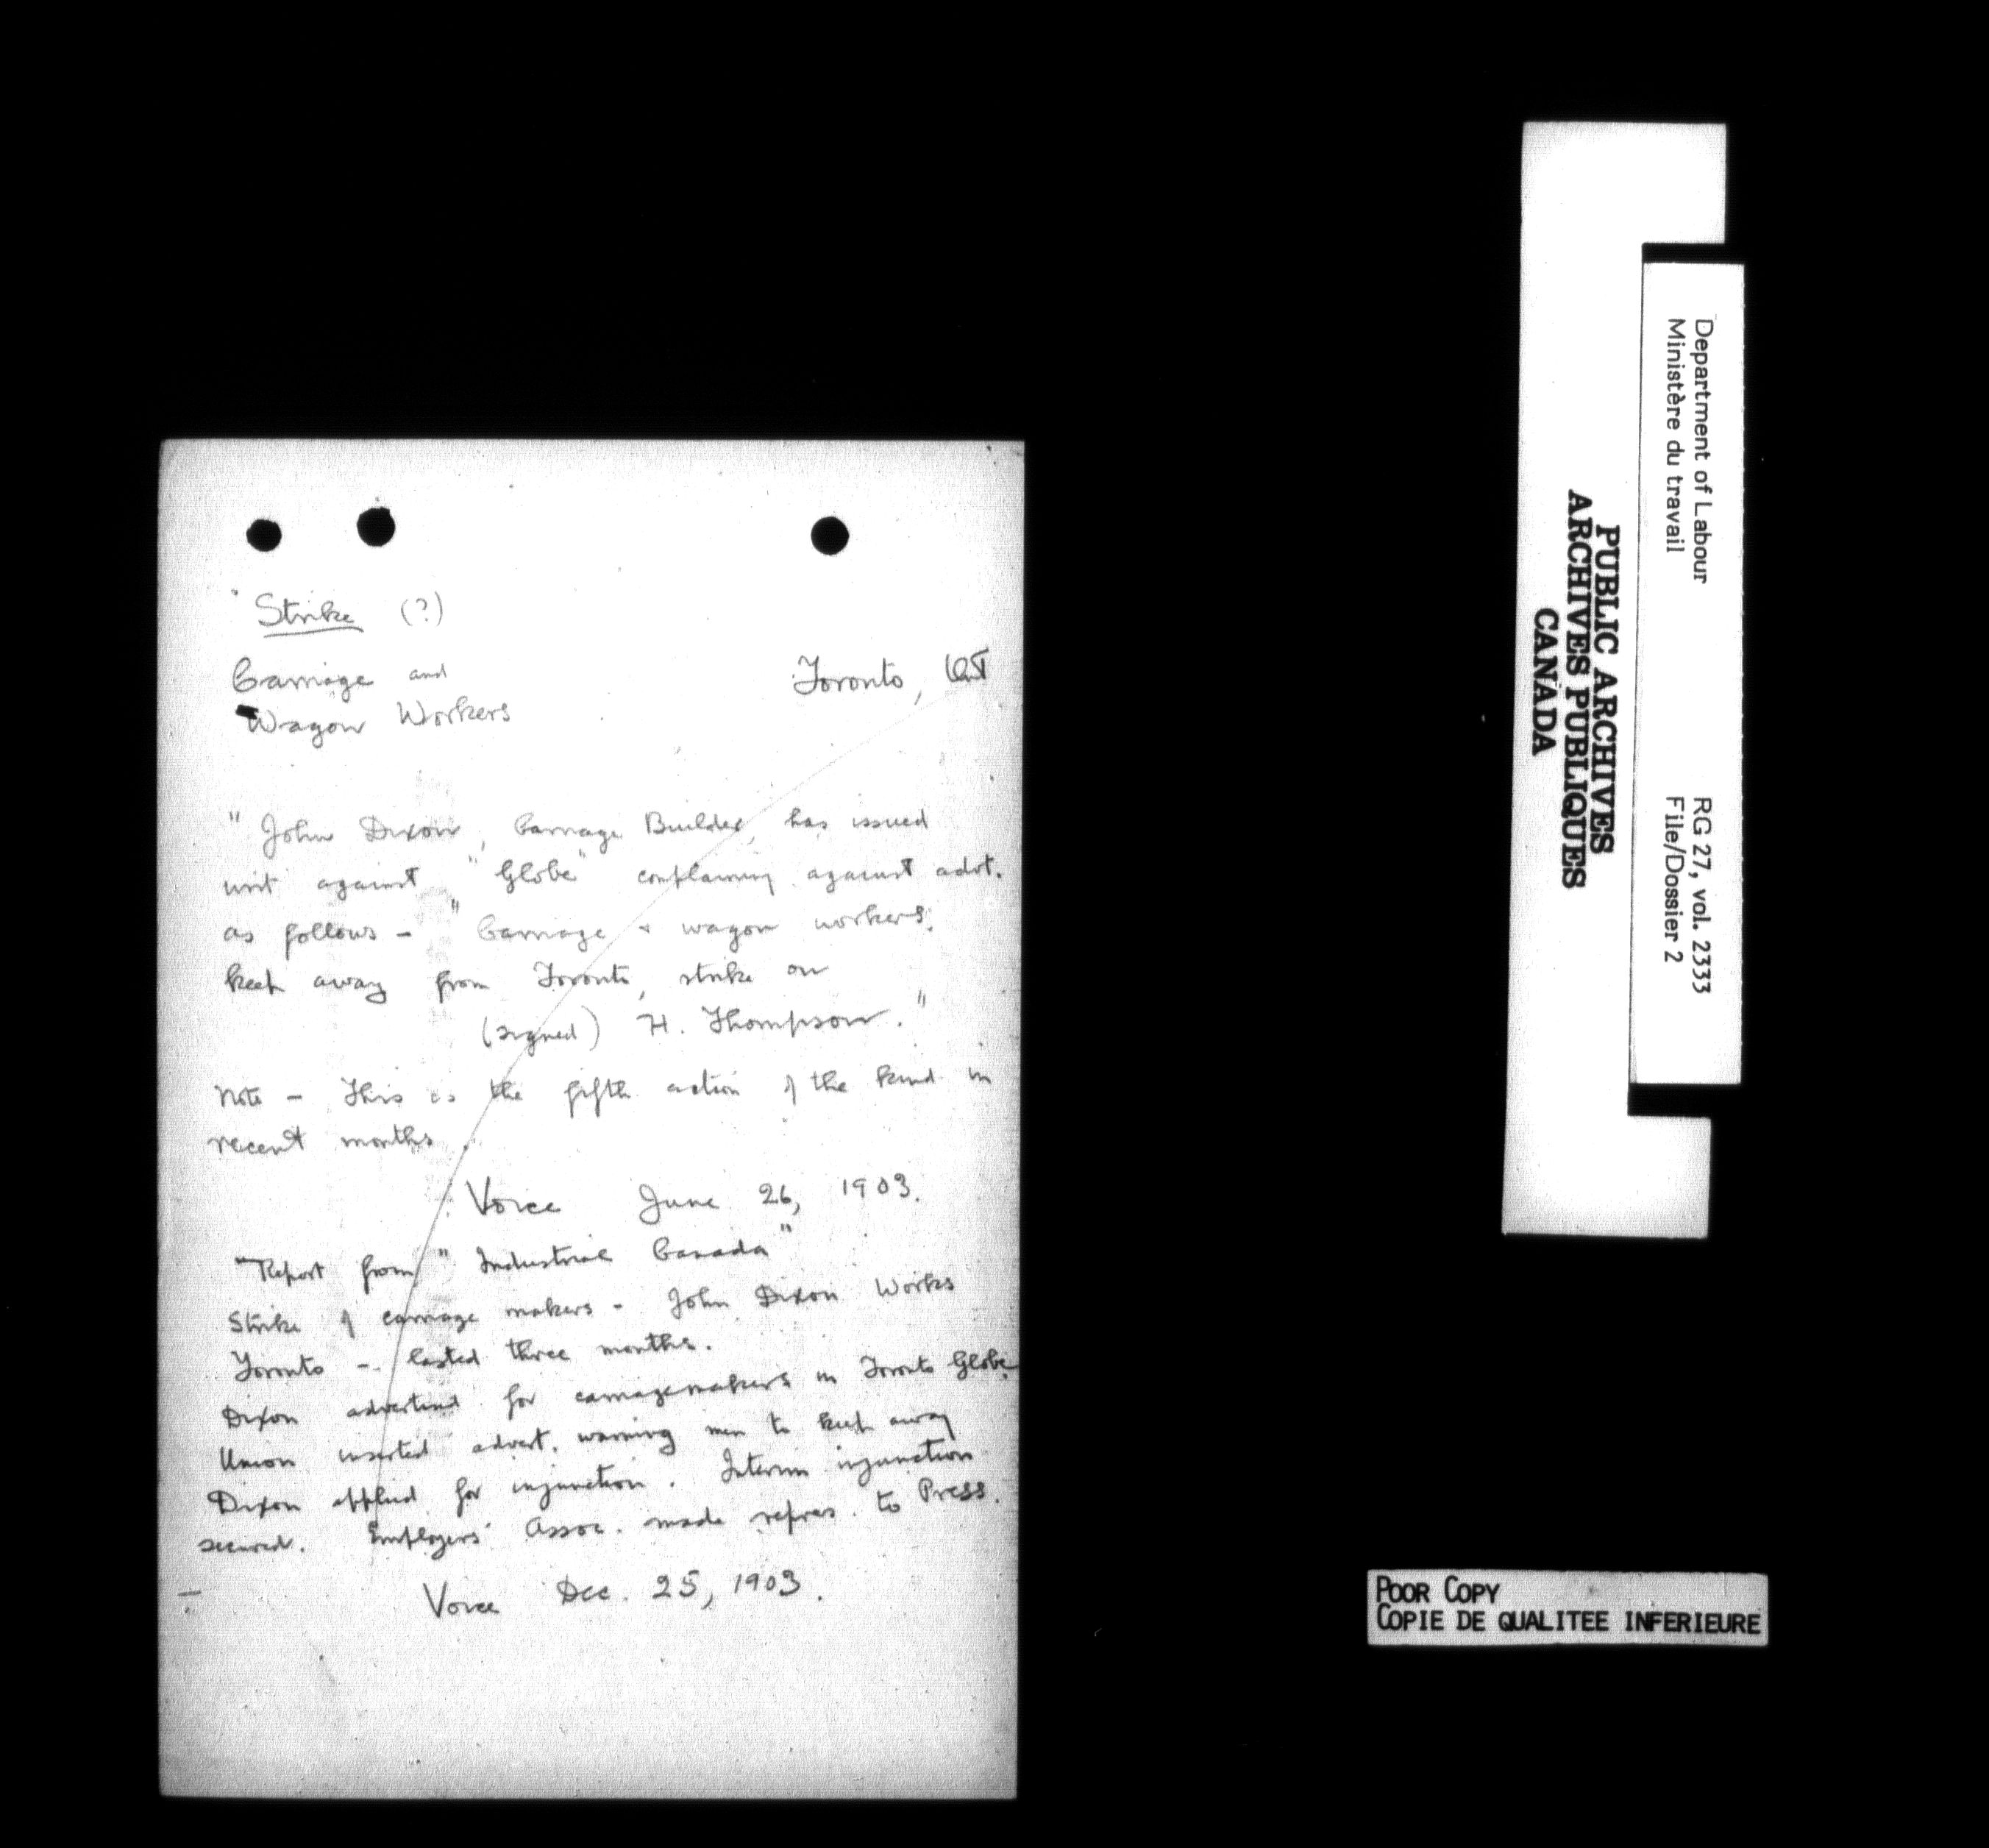 Strike (?)
Carriage and
Wagon Workers
Toronto, Ont
" John Dixon, Carriage Builder, has issued
writ against "Globe" complaining against advt.
as follows - "Carriage + wagon workers,
keep away from Toronto, strike on
(signed) H. Thompson."
Note - This is the fifth action of the kind in
recent months.
Voice June 26, 1903.
"Report from "Industrial Canada"
Strike of carriage makers - John Dixon Works
Toronto - lasted three months.
Dixon advertised for carriagemakers in Toronto Globe.
Union inserted advert. warning men to keep away
Dixon applied for injunction. Interim injunction
secured. Employers' Assoc. made repres. to Press.
Voice Dec. 25, 1903.
Department of Labour
Ministère du travail
RG 27, vol. 2333
File/Dossier 2
PUBLIC ARCHIVES
ARCHIVES PUBLIQUES
CANADA
POOR COPY
COPIE DE QUALITEE INFERIEURE